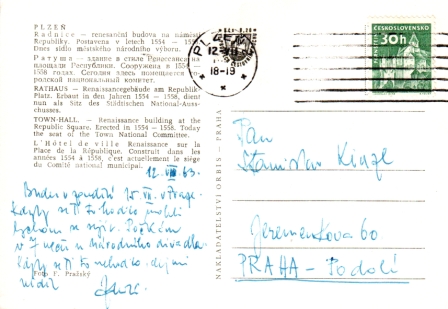 PLZEŇ
Radnice – renesanční budova na náměstí
Republiky. Postavena v letech 1554 – 1558.
Dnes sídlo městského národního výboru.
Ратуша – здание в стиле Ренессанса на
площади Республики. Сооружена в 1554 –
1558 годах. Сегодня здесь помещается го-
родской национальный комитет.
RATHAUS – Renaissancegebäude am Republik
Platz. Erbaut in den Jahren 1554 – 1558, dient
nun als Sitz des Städtischen National-Auss-
chusses.
TOWN-HALL. – Renaissance building at the
Republic Square. Erected in 1554 – 1558. Today
the seat of the Town National Committee.
L'Hôtel de ville Renaissance sur la
Place de la République. Construit dans les
années 1554 à 1558, c'est actuellement le siège
du Comité national municipal.
12. VII 63.
v Praze.
Kdyby se Ti to hodilo mohli
v 7 večer u Národního divadla
Kdyby se Ti to nehodilo
Foto F. Pražský
NAKLADATELSTVÍ ORBIS - PRAHA
PLZEŇ
18-19
ČESKOSLOVENSKO
30h
Pan
Stanislav
Jeremenkova 60
PRAHA - Podolí